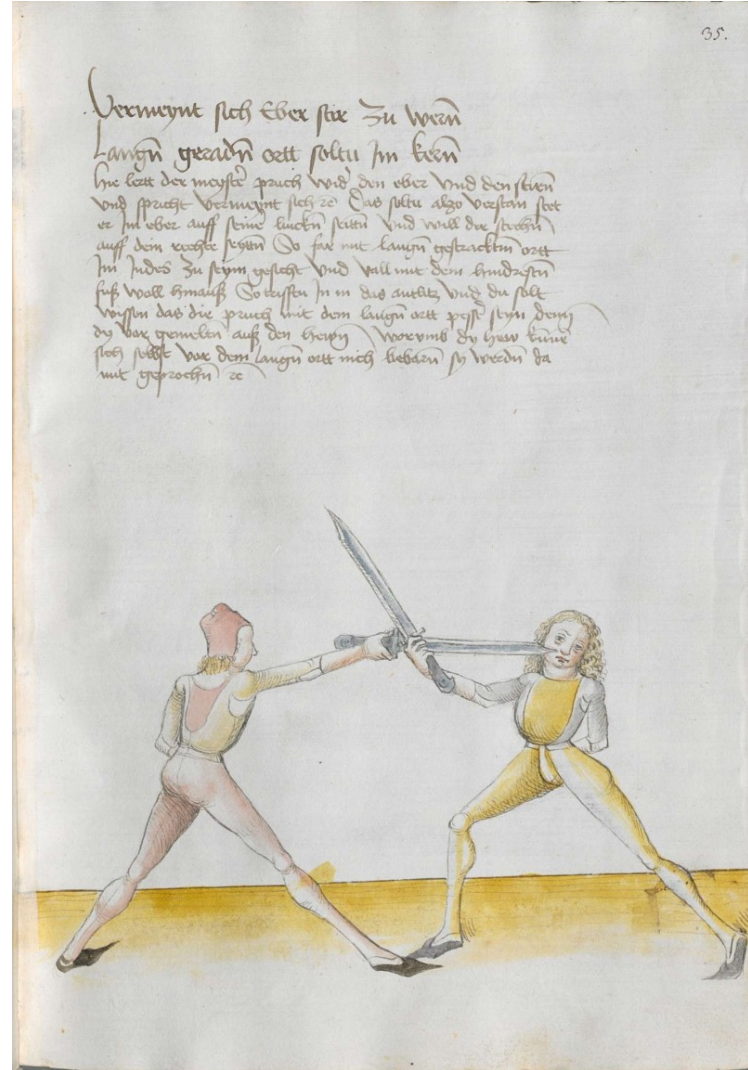 35.
Vermeynt sich Eber stir zu wern̄
Langn̄ geradn̄ ortt soltu Im kern̄
hie lertt der meyster pruch wid' den eber Vnd den stiern̄
Vnd spricht Vermeynt sich ꝛc Das soltu also verstan stet
er Im eber auff seine linckn̄ seittn̄ Vnd will dir stechn̄
auff dein rechte seyttn̄ So far mit langn̄ gestracktm̄ ortt
Im Indes zu seym gesicht Vnd vall mit dem hindrestn̄
fuß woll hinauß So triffstu In in das antlitz Vnd du solt
wissen das die pruch mit dem langn̄ ortt pesser seyn denn
dy vor gemeltn̄ auß den hewn̄ Worvmb dy hew künē
sich selbst vor dem langn̄ ortt nich bebarn̄ sy werdn̄ da
mit geprochn̄ ꝛc